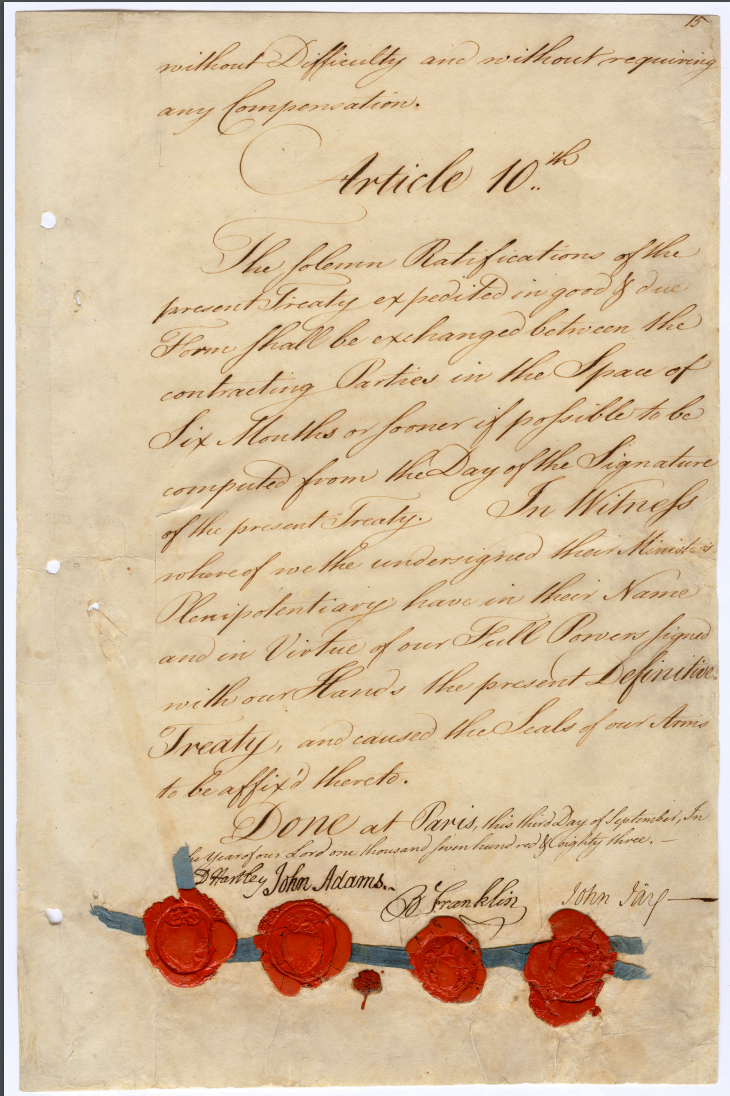 15
without Difficulty and without requiring
any Compensation.
Article 10.th
The solemn Ratifications of the
present Treaty expedited in good & due
Form shall be exchanged between the
contracting Parties in the Space of
Six Months or sooner if possible to be
computed from the Day of the Signature
of the present Treaty. In Witness
whereof we the undersigned their Ministers
Plenipotentiary have in their Name
and in Virtue of our Full Powers signed
with our Hands the present Definitive
Treaty, and caused the Seals of our Arms
to be affix'd thereto.
Done at Paris, this third Day of September, In
he Year of our Lord one thousand seven hundred & eighty three.—
D Hartley John Adams.
B Franklin John Jay